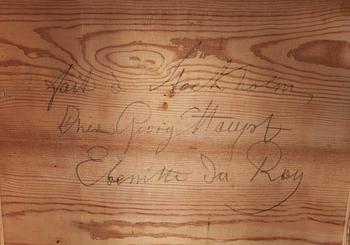 fait à Stockholm,
Chez Georg Haupt
Ebeniste Du Roy